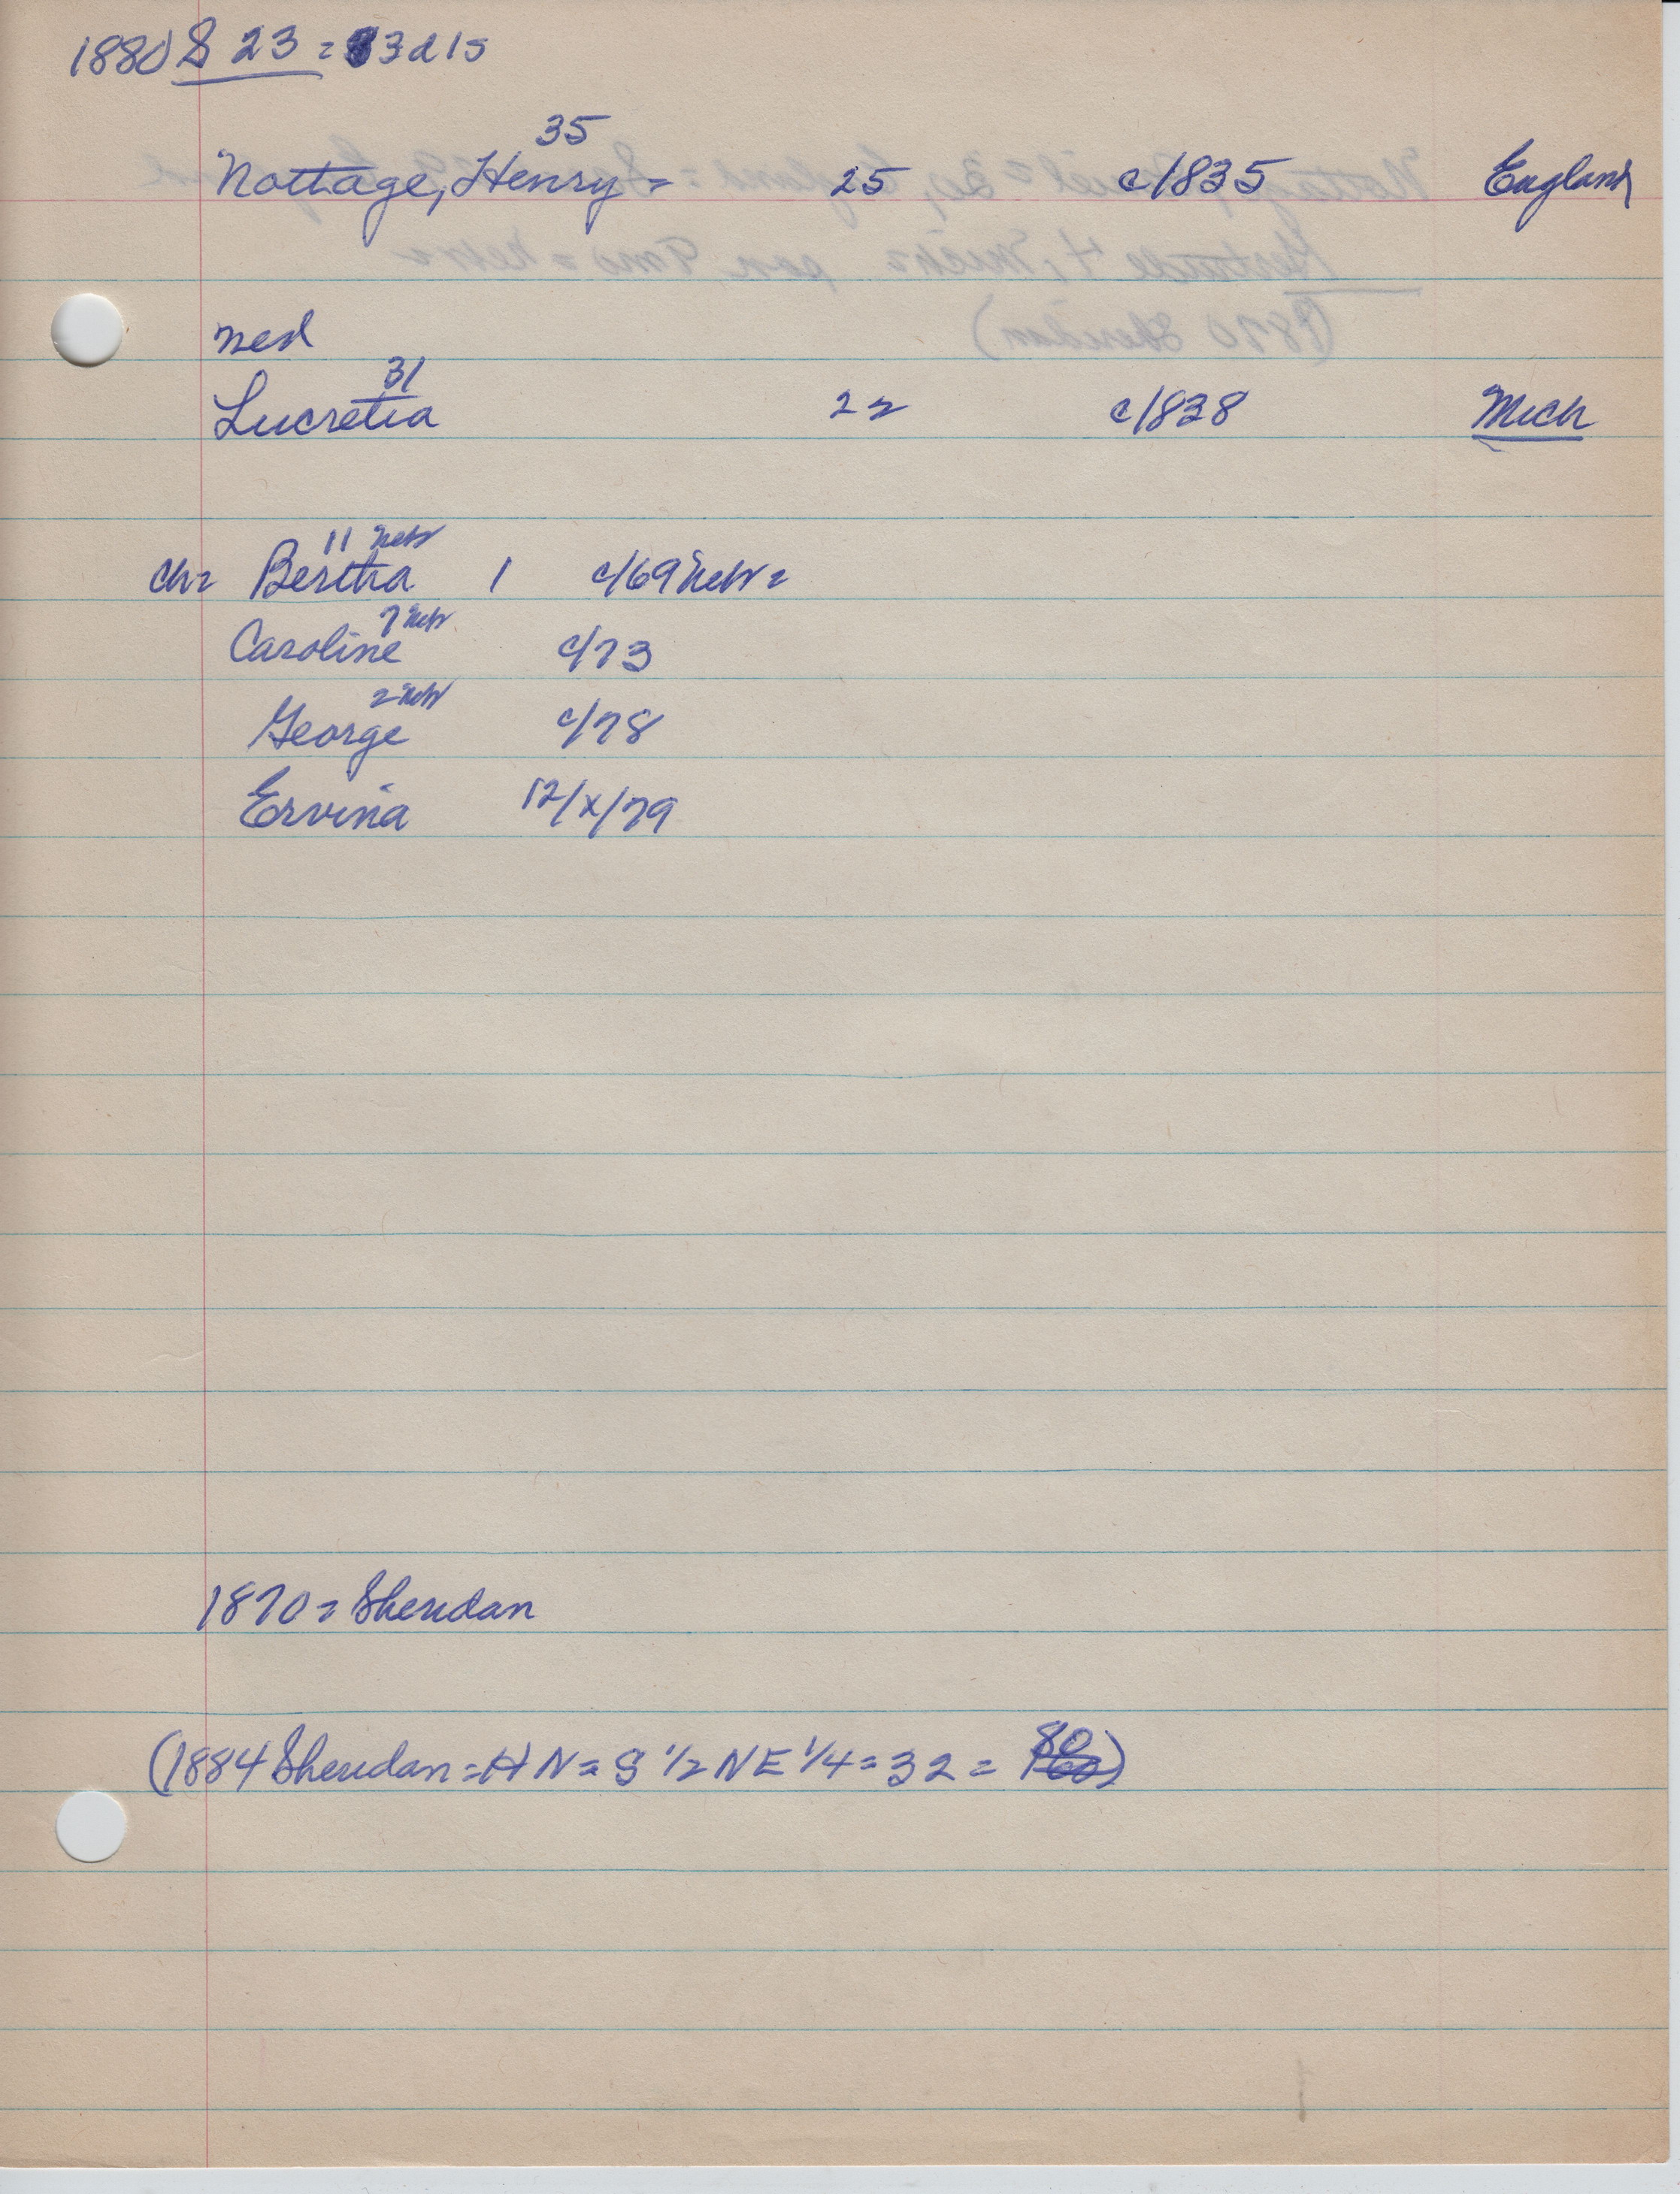 1880 S 23 = 3d 15
35
Nottage, Henry = 25 c/1835 England
ned
31
Lucretia 22 c/1838 Mich
11 Neb
ch= Bertha 1 c/69 Neb =
7 Neb
Caroline c/73
2 Neb
George c/78
Ervina 12/x/79
1870 = Sheridan
80
(1884 Sheridan = HN = S 1/2 NE 1/4 = 32 = 160)